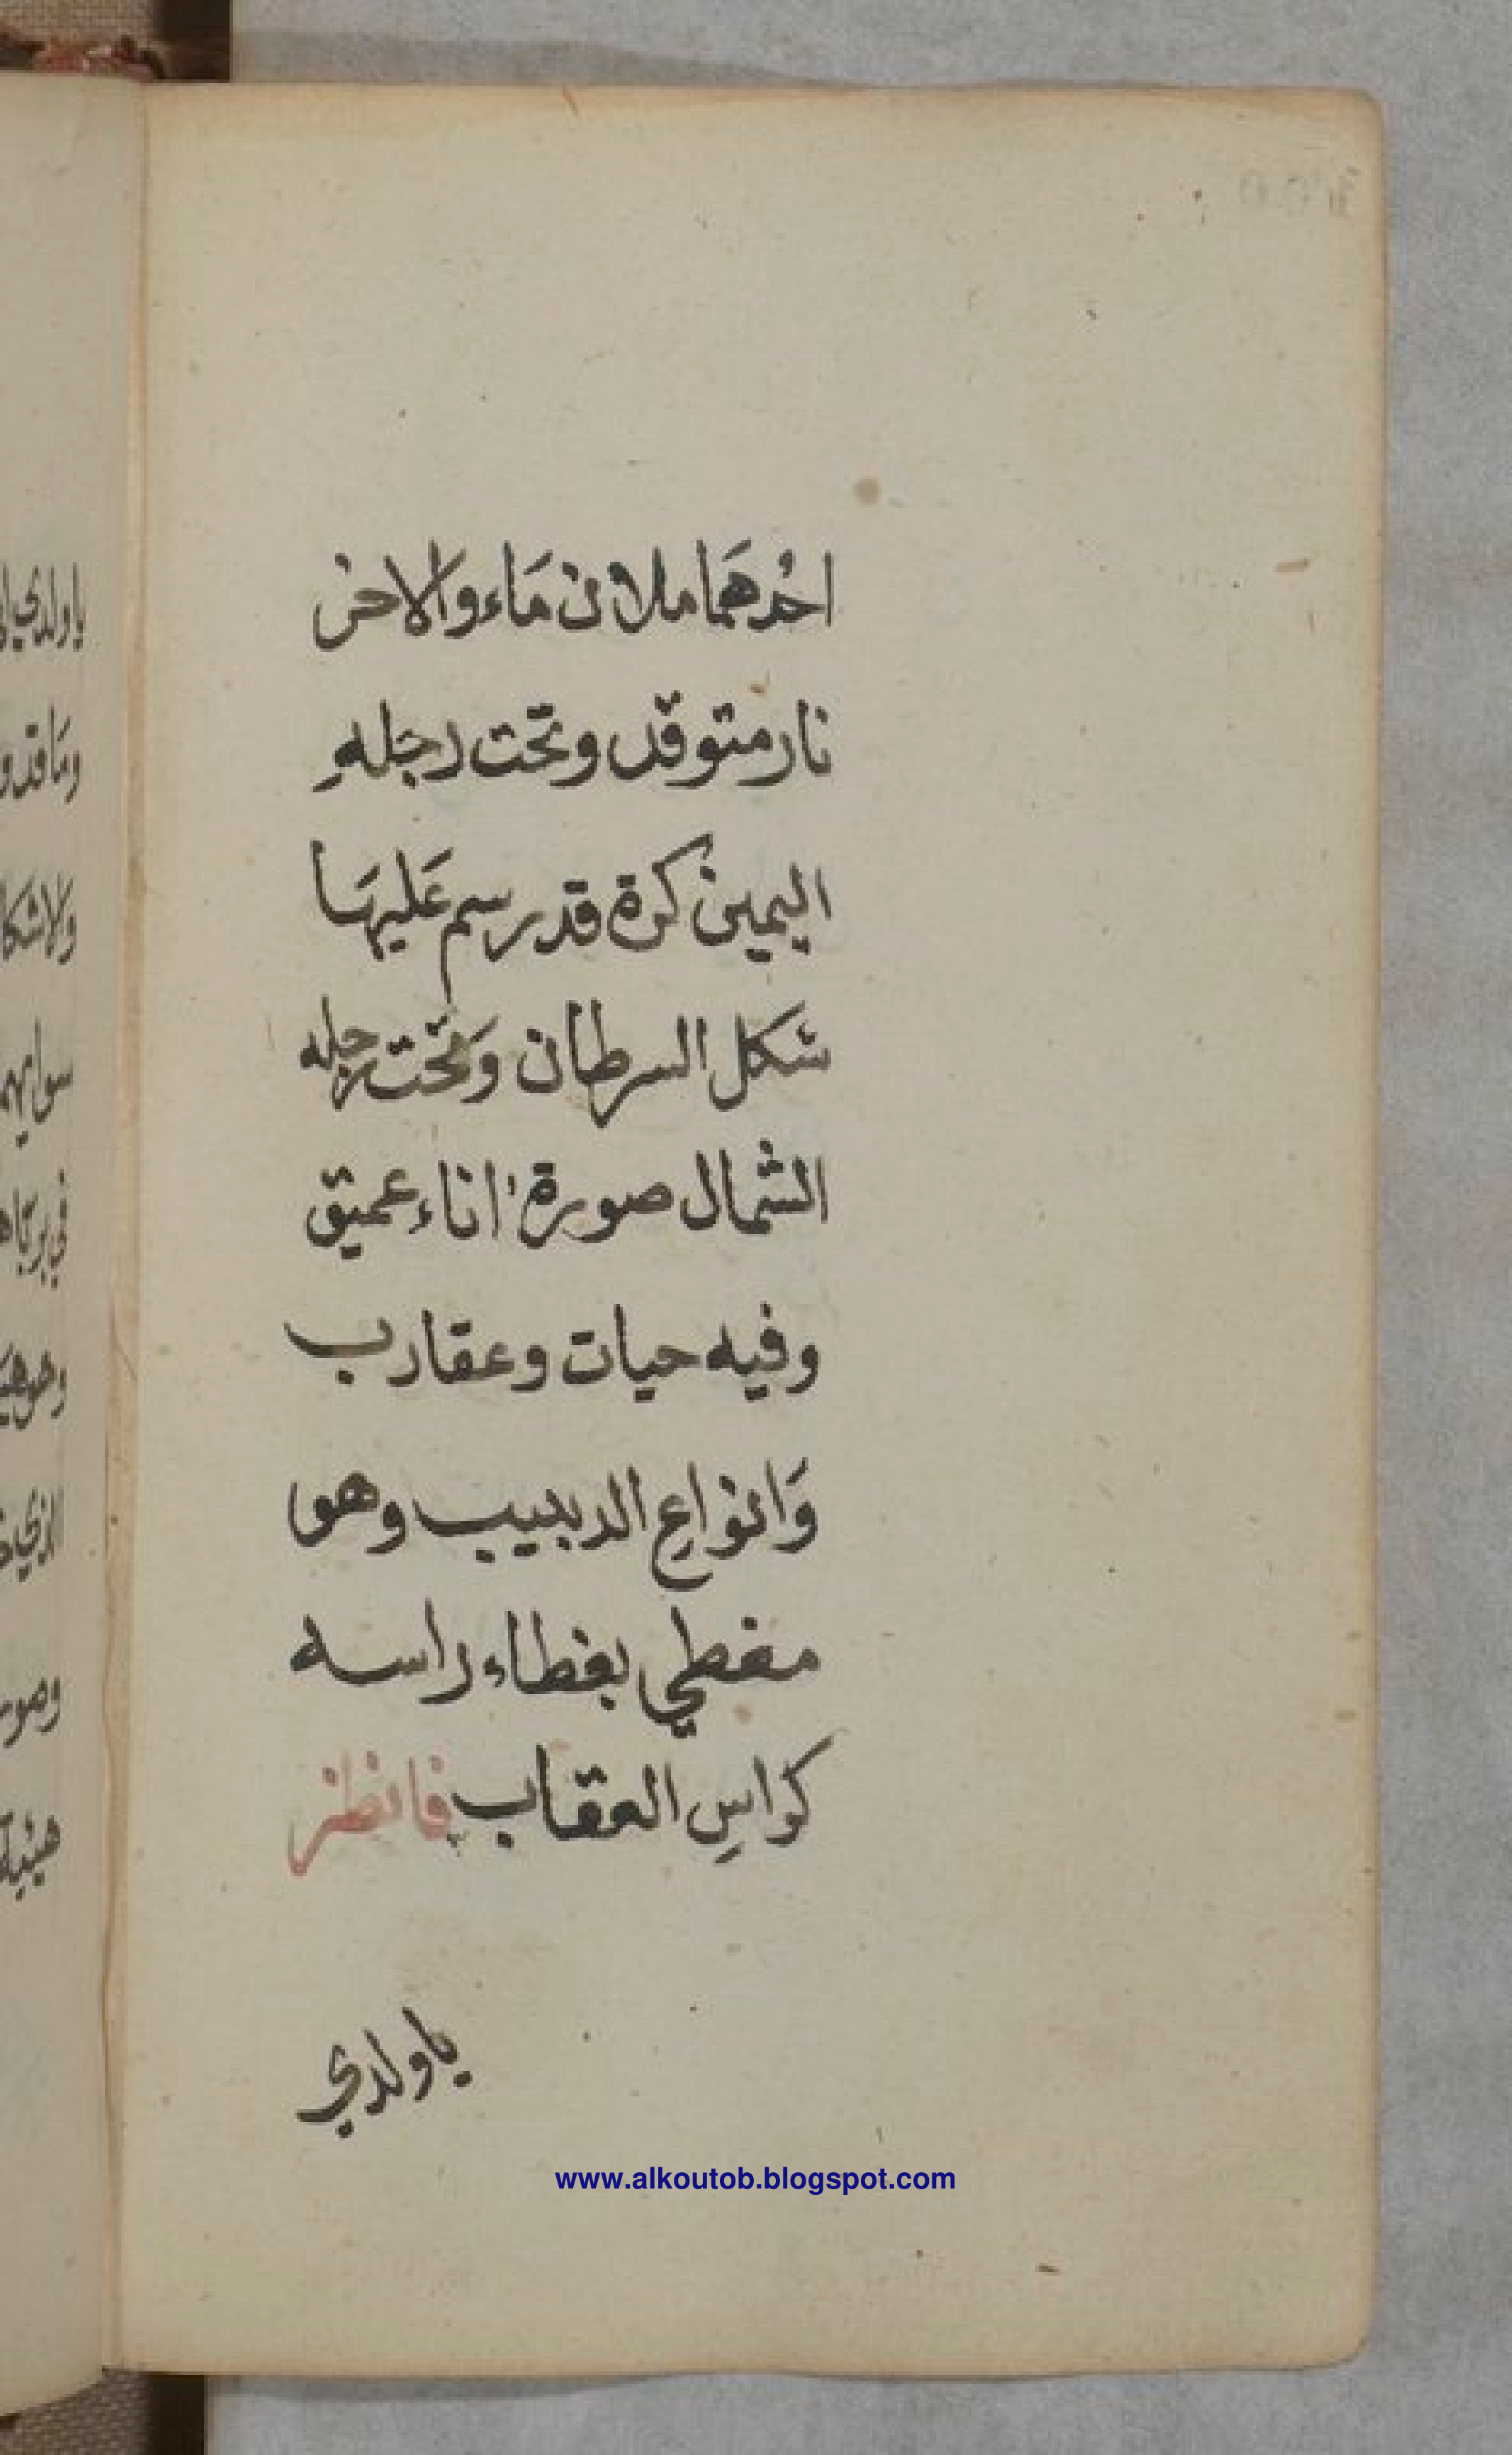 احدهَما ملان مَاء والاخر
نار متوقد وتحت رجلهِ
اليمين كرة قد رسم عَليهَا
شكل السرطان وَتحت رجله
الشمال صورة اناء عميق
وفيه حيات وعقارب
وَانواعِ الدبيب وهو
مغطي بغطاء راسه
كراسِ العقاب فانظر
ياولدي
www.alkoutob.blogspot.com